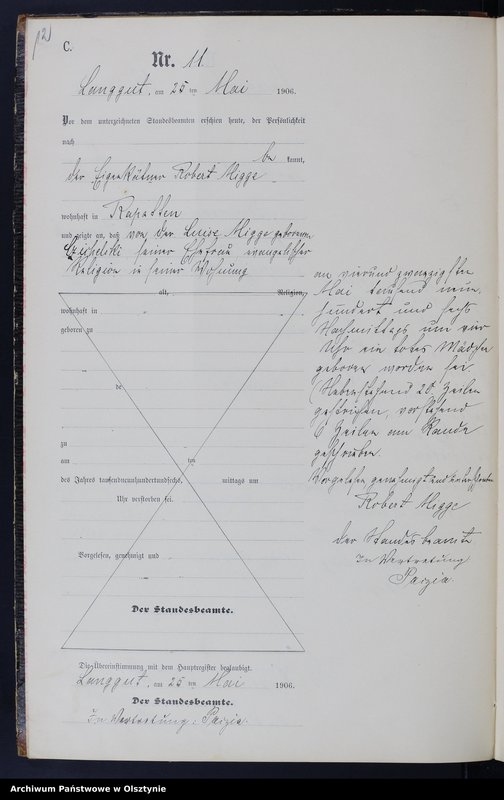 C.
Nr. 11
Langgut, am 25 ten Mai 1906.
Vor dem unterzeichneten Standesbeamten erschien heute, der Persönlichkeit
nach
be kannt,
der Eigenkätner Robert Migge
wohnhaft in
und zeigte an, daß von der Louise Migge geborenen
seiner Ehefrau evangelischer
Religion in seiner Wohnung
alt, Religion,
wohnhaft in
geboren zu
de
zu
am ten
des Jahres tausendneunhundertundsechs mittags um
Uhr verstorben sei.
Vorgelesen, genehmigt und
Der Standesbeamte.
Die Übereinstimmung mit dem Hauptregister beglaubigt.
Langgut, am 25 ten Mai 1906.
Der Standesbeamte.
In Vertretung:
am vierundzwanzigsten
Mai tausend neun
hundert und sechs
Nachmittags um vier
Uhr ein totes Mädchen
geboren worden sei.
(Nebenstehend 20 Zeilen
gestrichen, vorstehend
6 Zeilen am Rande
geschrieben.
Vorgelesen genehmigt und unterschrieben
Robert Migge
Der Standesbeamte
In Vertretung
Archiwum Państwowe w Olsztynie